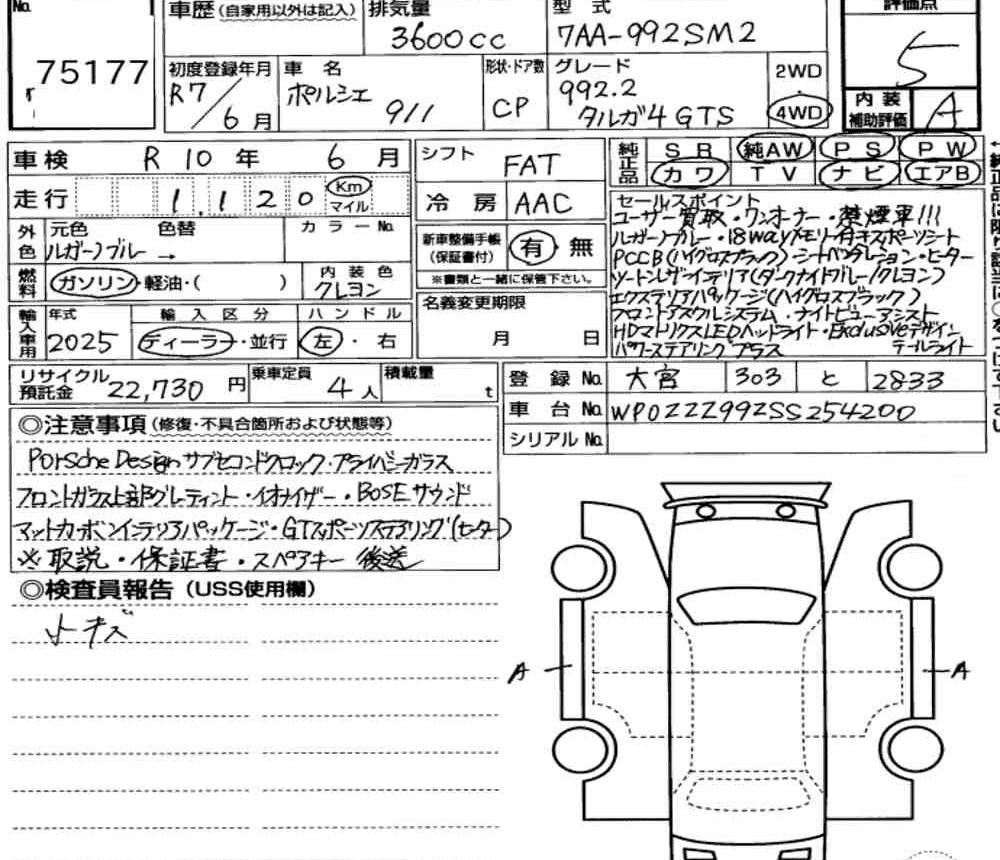 No. 車歴 (自家用以外は記入) 排気量 型式 評価点
75177 3600cc 7AA-992SM2 5
初度登録年月 車名 形状・ドア数 グレード 2WD
R7/6月 ポルシェ 911 CP 992.2 タルガ4 GTS 4WD
内装補助評価 A
車検 R 10 年 6 月 シフト FAT 純正品 SR 純AW PS PW
走行 1,120 Km マイル 冷房 AAC カワ TV ナビ エアB
外色 元色 色替 カラーNo.
ルガーノブルー →
新車整備手帳 (保証書付) 有・無
※書類と一緒に保管下さい。
燃料 ガソリン・軽油・( ) 内装色 クレヨン
名義変更期限 月 日
輸入車用 年式 輸入区分 ハンドル
2025 ディーラー・並行 左・右
セールスポイント
ユーザー買取・ワンオーナー・禁煙車!!!
ルガーノブルー・18wayメモリー付きスポーツシート
PCCB(ハイグロスブラック)・シートベンチレーション・ヒーター
ツートンレザーインテリア(ダークナイトブルー/クレヨン)
エクステリアパッケージ(ハイグロスブラック)
フロントアクスルシステム・ナイトビューアシスト
HDマトリクスLEDヘッドライト・Exclusiveデザイン
パワーステアリングプラス テールライト
リサイクル預託金 22,730 円 乗車定員 4人 積載量 t
登録No. 大宮 303 と 2833
車台No. WP0ZZZ99ZSS254200
シリアルNo.
◎注意事項 (修復・不具合箇所および状態等)
Porsche Design サブセコンドクロック・プライバシーガラス
フロントガラス上部グレーティント・イオナイザー・BOSEサウンド
マットカーボンインテリアパッケージ・GTスポーツステアリング(ヒーター)
※取説・保証書・スペアキー後送
◎検査員報告 (USS使用欄)
小キズ
A A